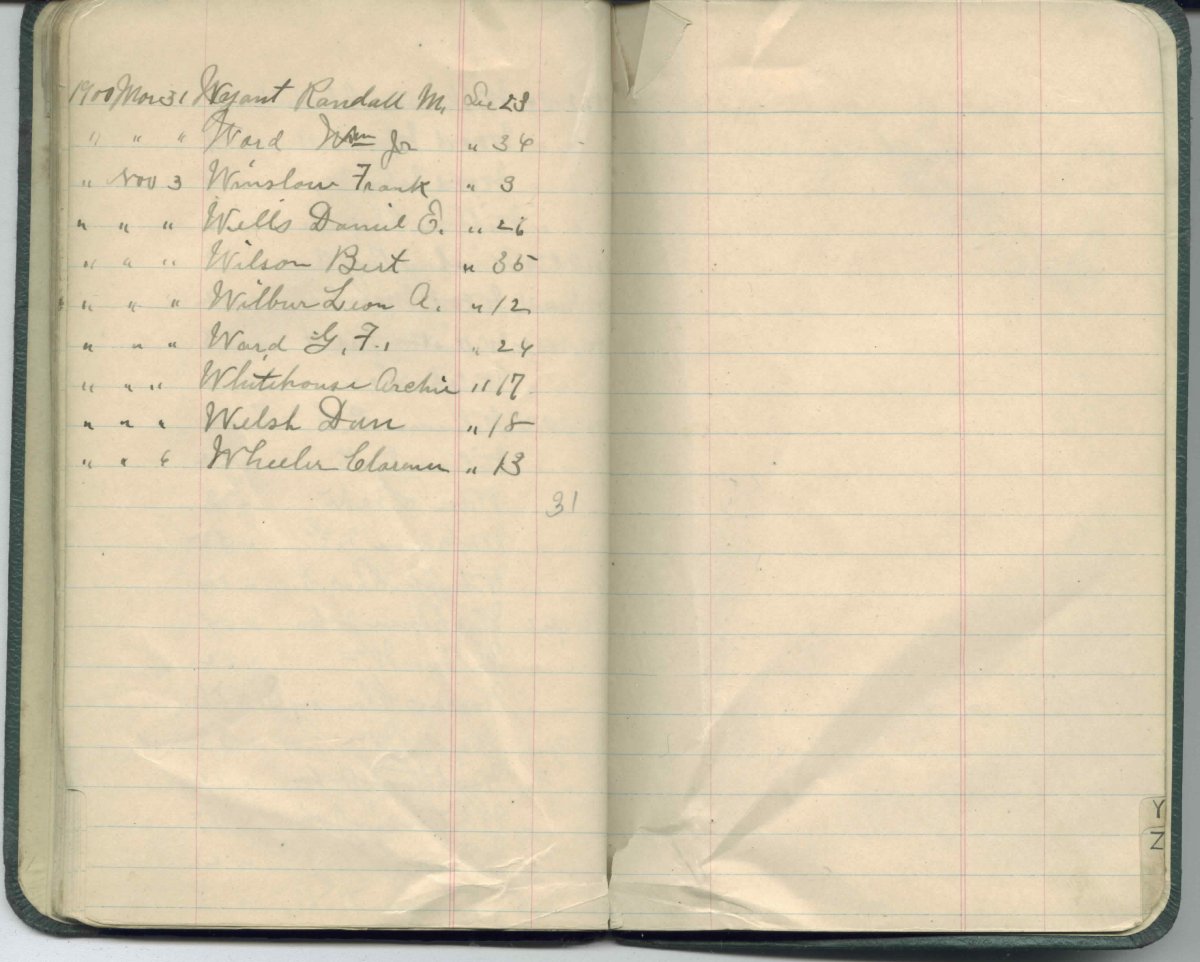 1900 Mar 31 Wyant Randall M. Sec 23
" " " Ward Wm Jr " 34
" Nov 3 Winslow Frank " 3
" " " Wells Daniel E. " 26
" " " Wilson Bert " 35
" " " Wilbur Leon A. " 12
" " " Ward G. F. " 24
" " " Whitehouse Archie " 17
" " " Welsh Dan " 18
" " 6 Wheeler Clarence " 13
31
Y
Z